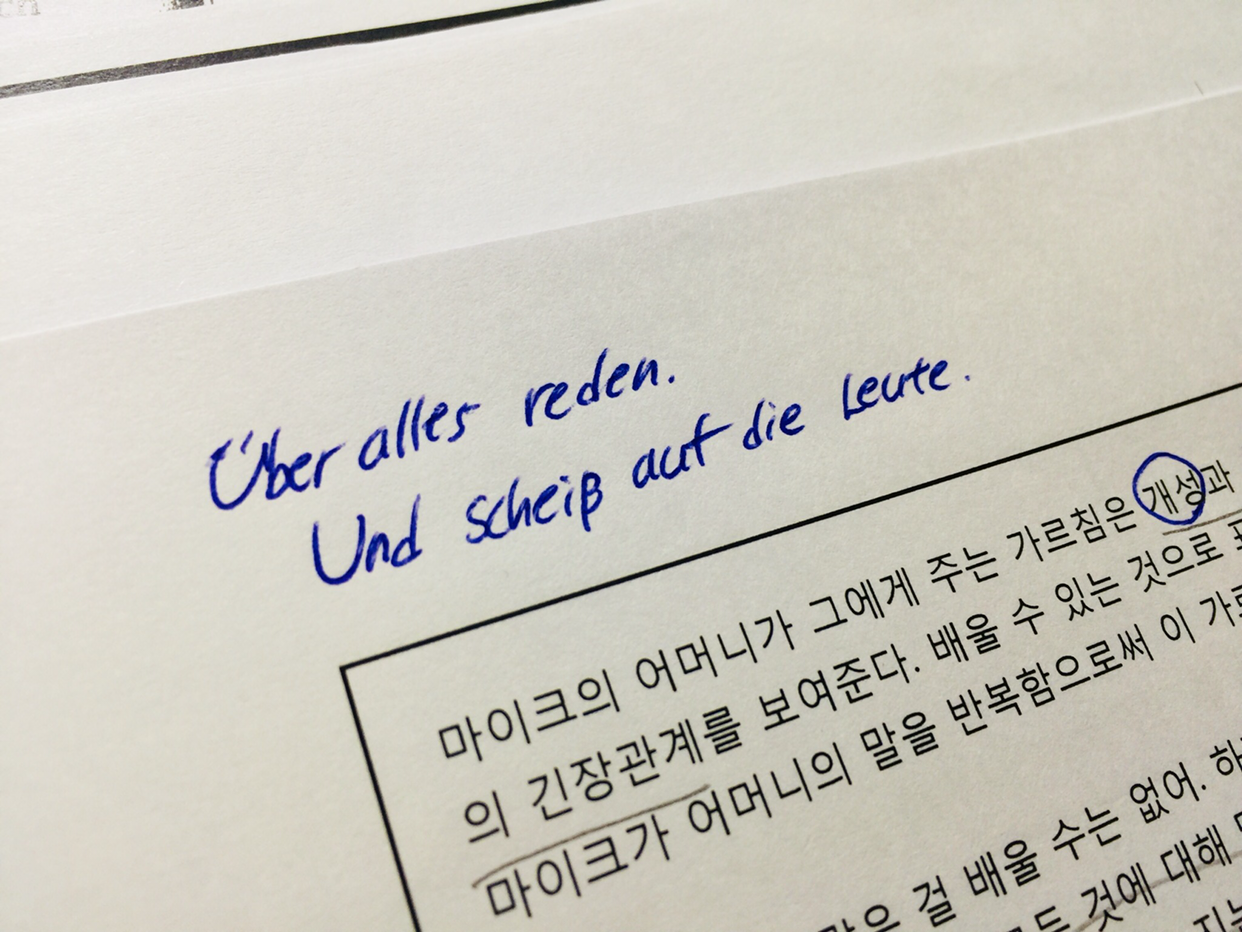 Über alles reden.
Und scheiß auf die Leute.
마이크의 어머니가 그에게 주는 가르침은 개성과
의 긴장관계를 보여준다. 배울 수 있는 것으로
마이크가 어머니의 말을 반복함으로써 이
걸 배울 수는 없어.
것에 대해